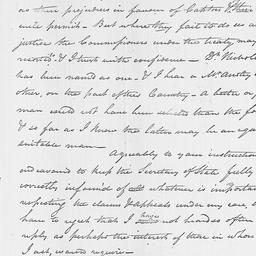 as their prejudices in favour of
permit - But where they fail to do so an
justice the Commissioners under the treaty may
& I think with confidence - Dr Nichol
has been named as one - & I hear a Mr Anstey
other, on the part of the Country - A better or
man could not have been selected than the fo
& so far as I know the latter may be an equa
suitable man -
Agreeably to your instruction
endeavored to keep the Secretary of State fully
correctly informed of all whatever is importan
respecting the claims & appeals under my care, a
have to regret that I have not heard so often
reply as perhaps the interests of those in whose
I act, would require -